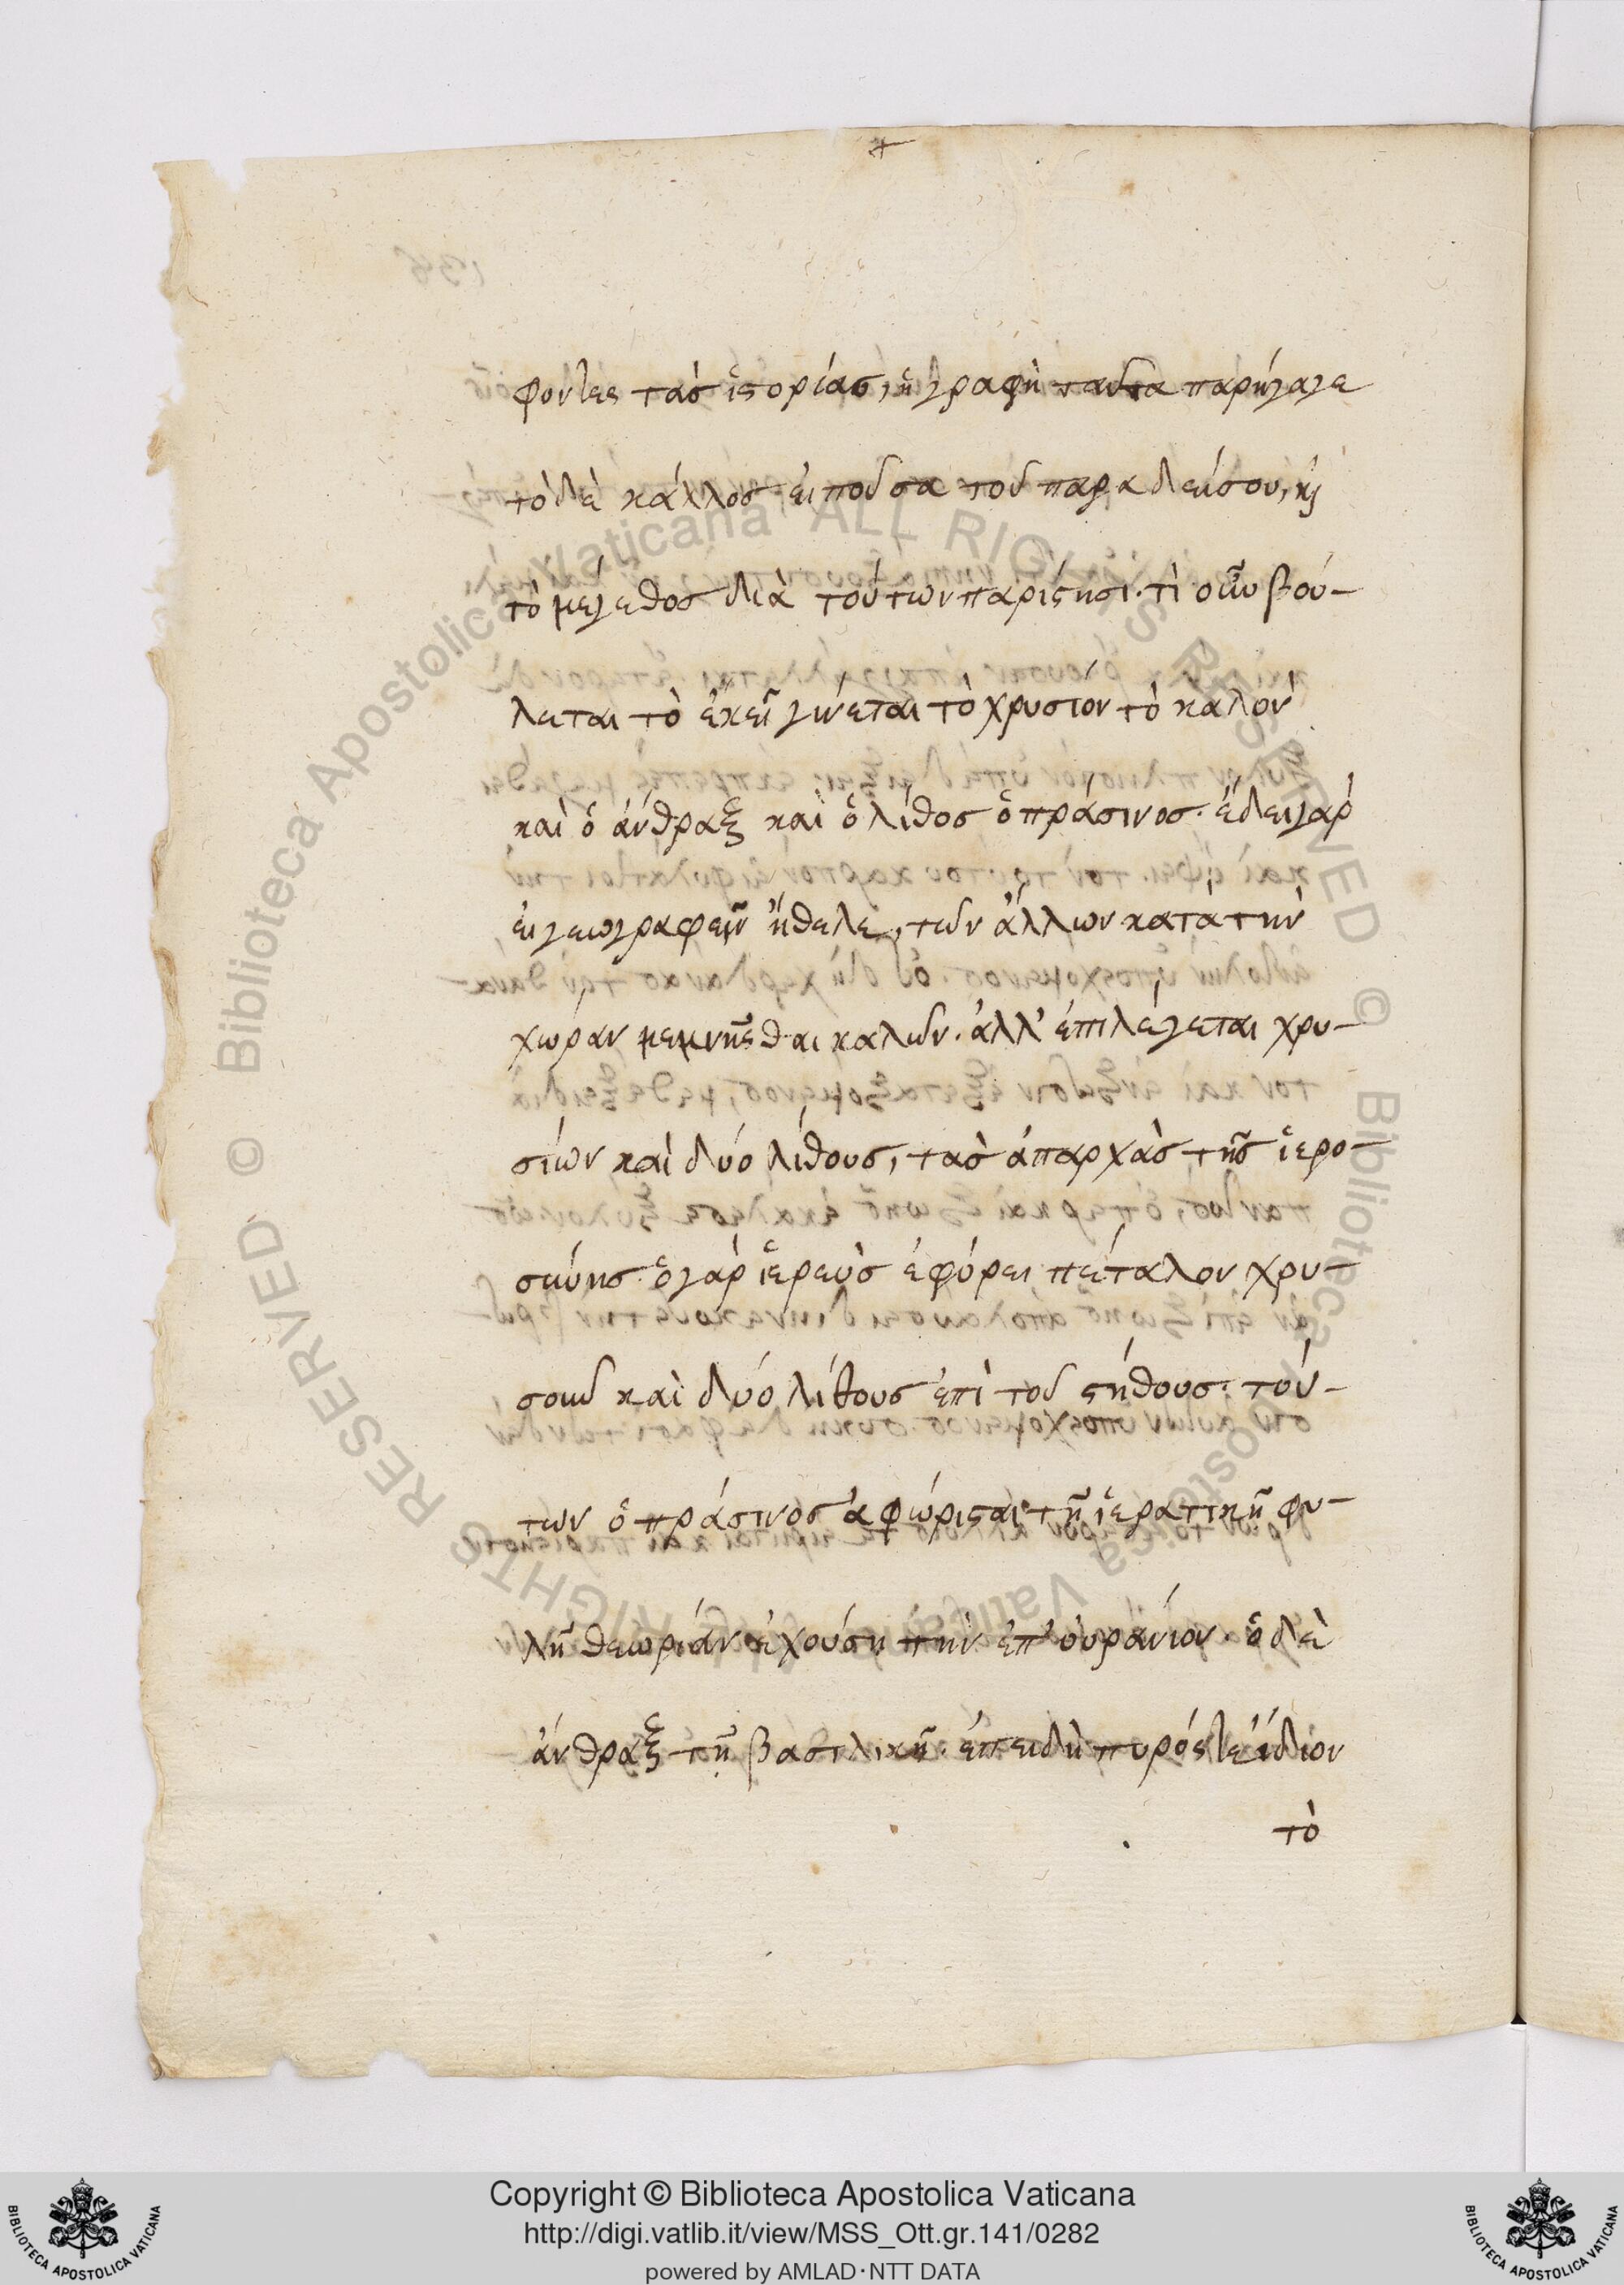 φοντες τὰς ἱστορίας, ἡ γραφὴ ταῦτα παρήγαγε
τὸ δὲ κάλλος εἰποῦσα τοῦ παραδείσου, καὶ
τὸ μέγεθος διὰ τούτων παρίστησι. τὶ οὖν βού-
λεται τὸ ἐκεῖ γίνεται τὸ χρυσίον τὸ καλὸν
καὶ ὁ ἄνθραξ καὶ ὁ λίθος ὁ πράσινος. ἔδει γὰρ
εἰ γεωγραφεῖν ἤθελε, τῶν ἄλλων κατὰ τὴν
χώραν μεμνῆσθαι καλῶν. ἀλλ' ἐπιλέγεται χρυ-
σίων καὶ δύο λίθους, τὰς ἀπαρχὰς τῆς ἱερο-
σύνης. ὁ γὰρ ἱερεὺς ἐφόρει πέταλον χρυ-
σοῦν καὶ δύο λίθους ἐπὶ τοῦ στήθους. τού-
των ὁ πράσινος ἀφώρισται τῇ ἱερατικῇ φυ-
λῇ θεωρίαν ἐχούσῃ τὴν ἐπ' οὐράνιον. ὁ δὲ
ἄνθραξ τῇ βασιλικῇ. ἐπειδὴ πυρός τε ἴδιον
τὸ
Copyright © Biblioteca Apostolica Vaticana
http://digi.vatlib.it/view/MSS_Ott.gr.141/0282
powered by AMLAD·NTT DATA
BIBLIOTECA APOSTOLICA VATICANA
BIBLIOTECA APOSTOLICA VATICANA